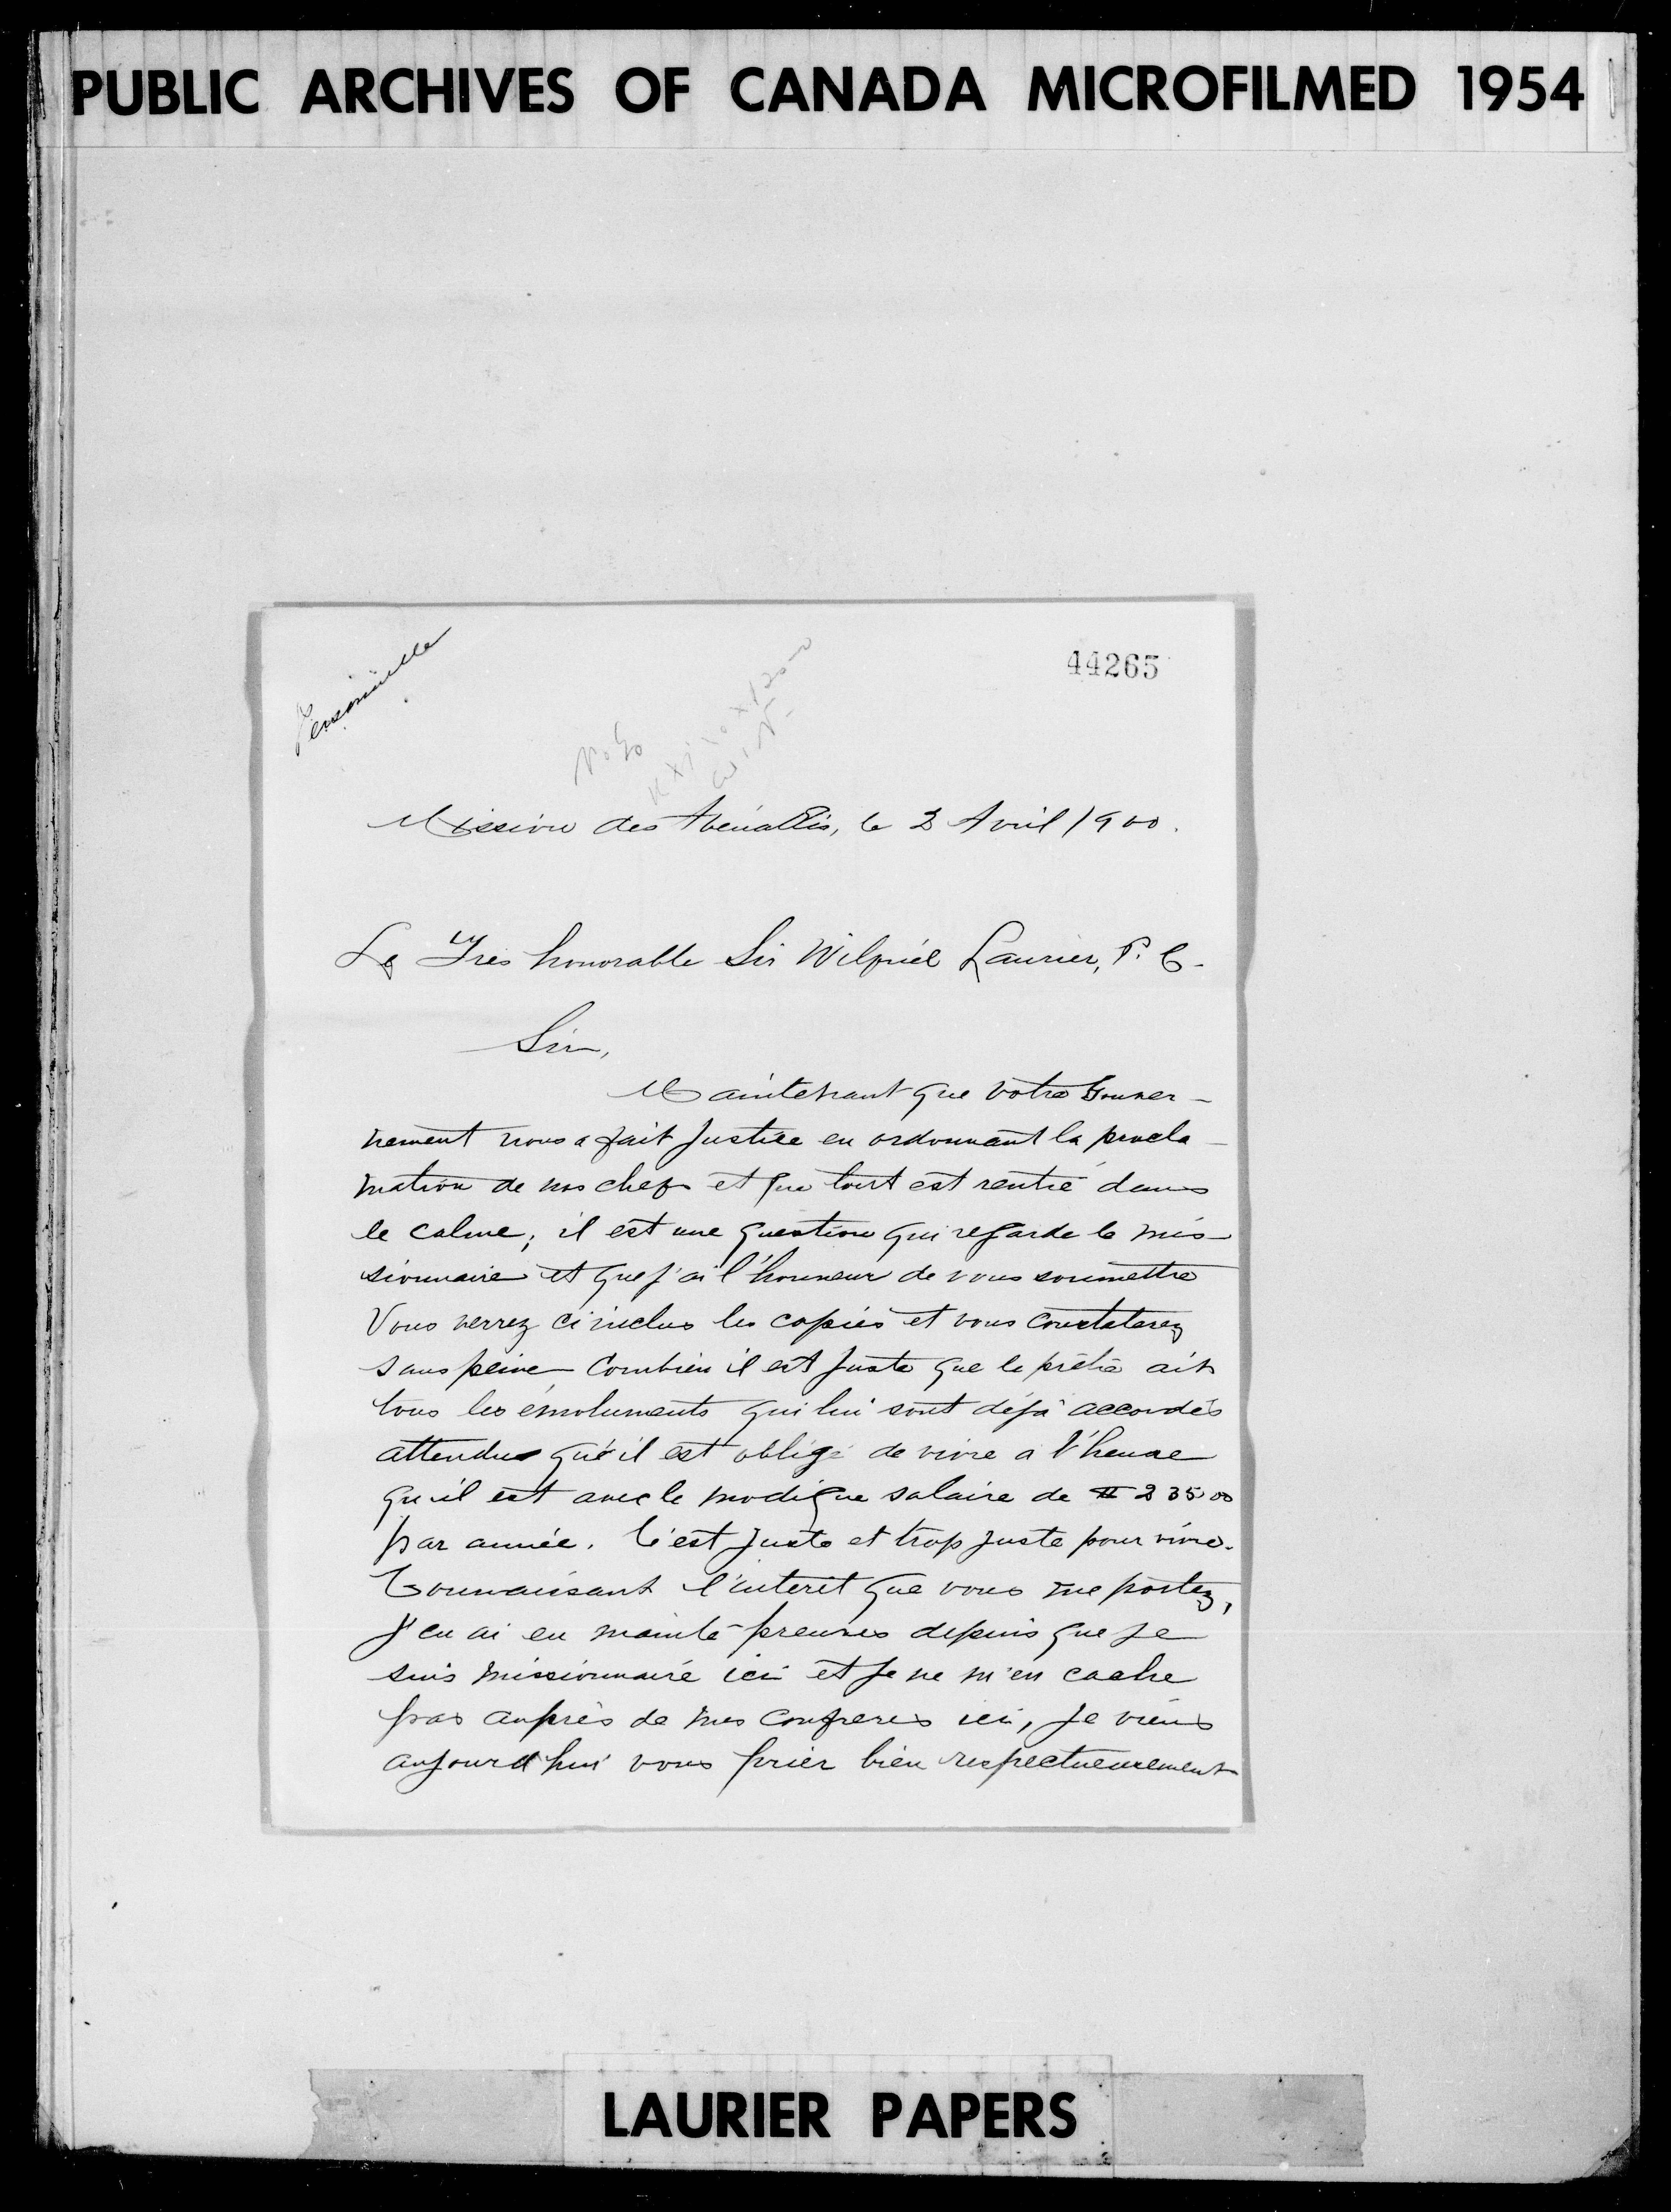 PUBLIC ARCHIVES OF CANADA MICROFILMED 1954
Personnelle
44265
Mission des Abénakis, le 2 Avril 1900.
Le Très honorable Sir Wilfrid Laurier, P. C.
Sir,
Maintenant que votre Gouver-
nement nous a fait justice en ordonnant la procla-
mation de nos chefs et que tout est rentré dans
le calme; il est une question qui regarde le mis-
sionnaire et que j'ai l'honneur de vous soumettre
Vous verrez ci inclus les copies et vous constaterez
sans peine combien il est juste que le prêtre ait
tous les émoluments qui lui sont déjà accordés
attendu qu'il est obligé de vivre à l'heure
qu'il est avec le modique salaire de $ 235 00
par année. C'est juste et trop juste pour vivre.
Connaissant l'intérêt que vous me portez,
j'en ai eu mainte preuves depuis que je
suis missionnaire ici et je ne m'en cache
pas auprès de mes confrères ici, je viens
aujourd'hui vous prier bien respectueusement
LAURIER PAPERS